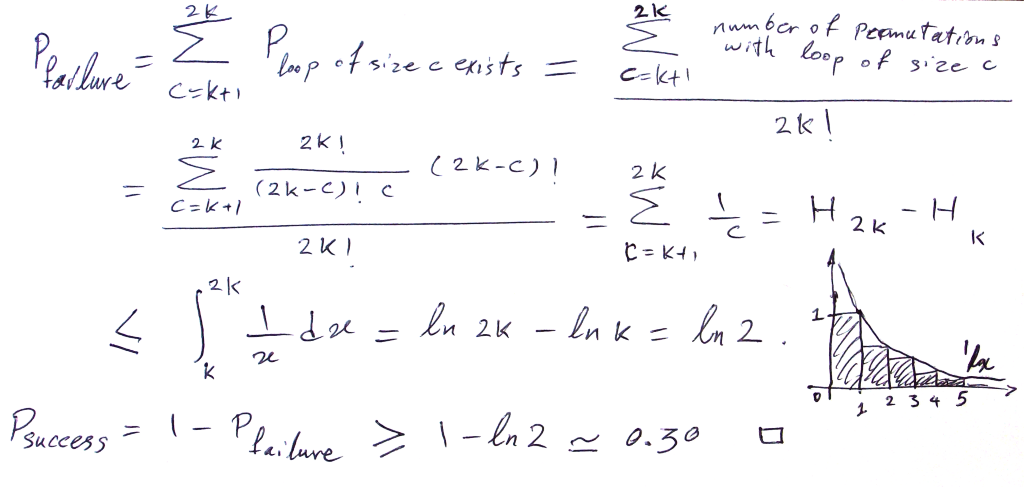 P_failure = \sum_{c=k+1}^{2k} P_{loop of size c exists} = \frac{\sum_{c=k+1}^{2k} number of permutations with loop of size c}{2k!}
= \frac{\sum_{c=k+1}^{2k} \frac{2k!}{(2k-c)! c} (2k-c)!}{2k!} = \sum_{c=k+1}^{2k} \frac{1}{c} = H_{2k} - H_k
≤ \int_k^{2k} \frac{1}{x} dx = ln 2k - ln k = ln 2 .
1 1/x
0 1 2 3 4 5
P_success = 1 - P_failure ≥ 1 - ln 2 ≃ 0.30 □